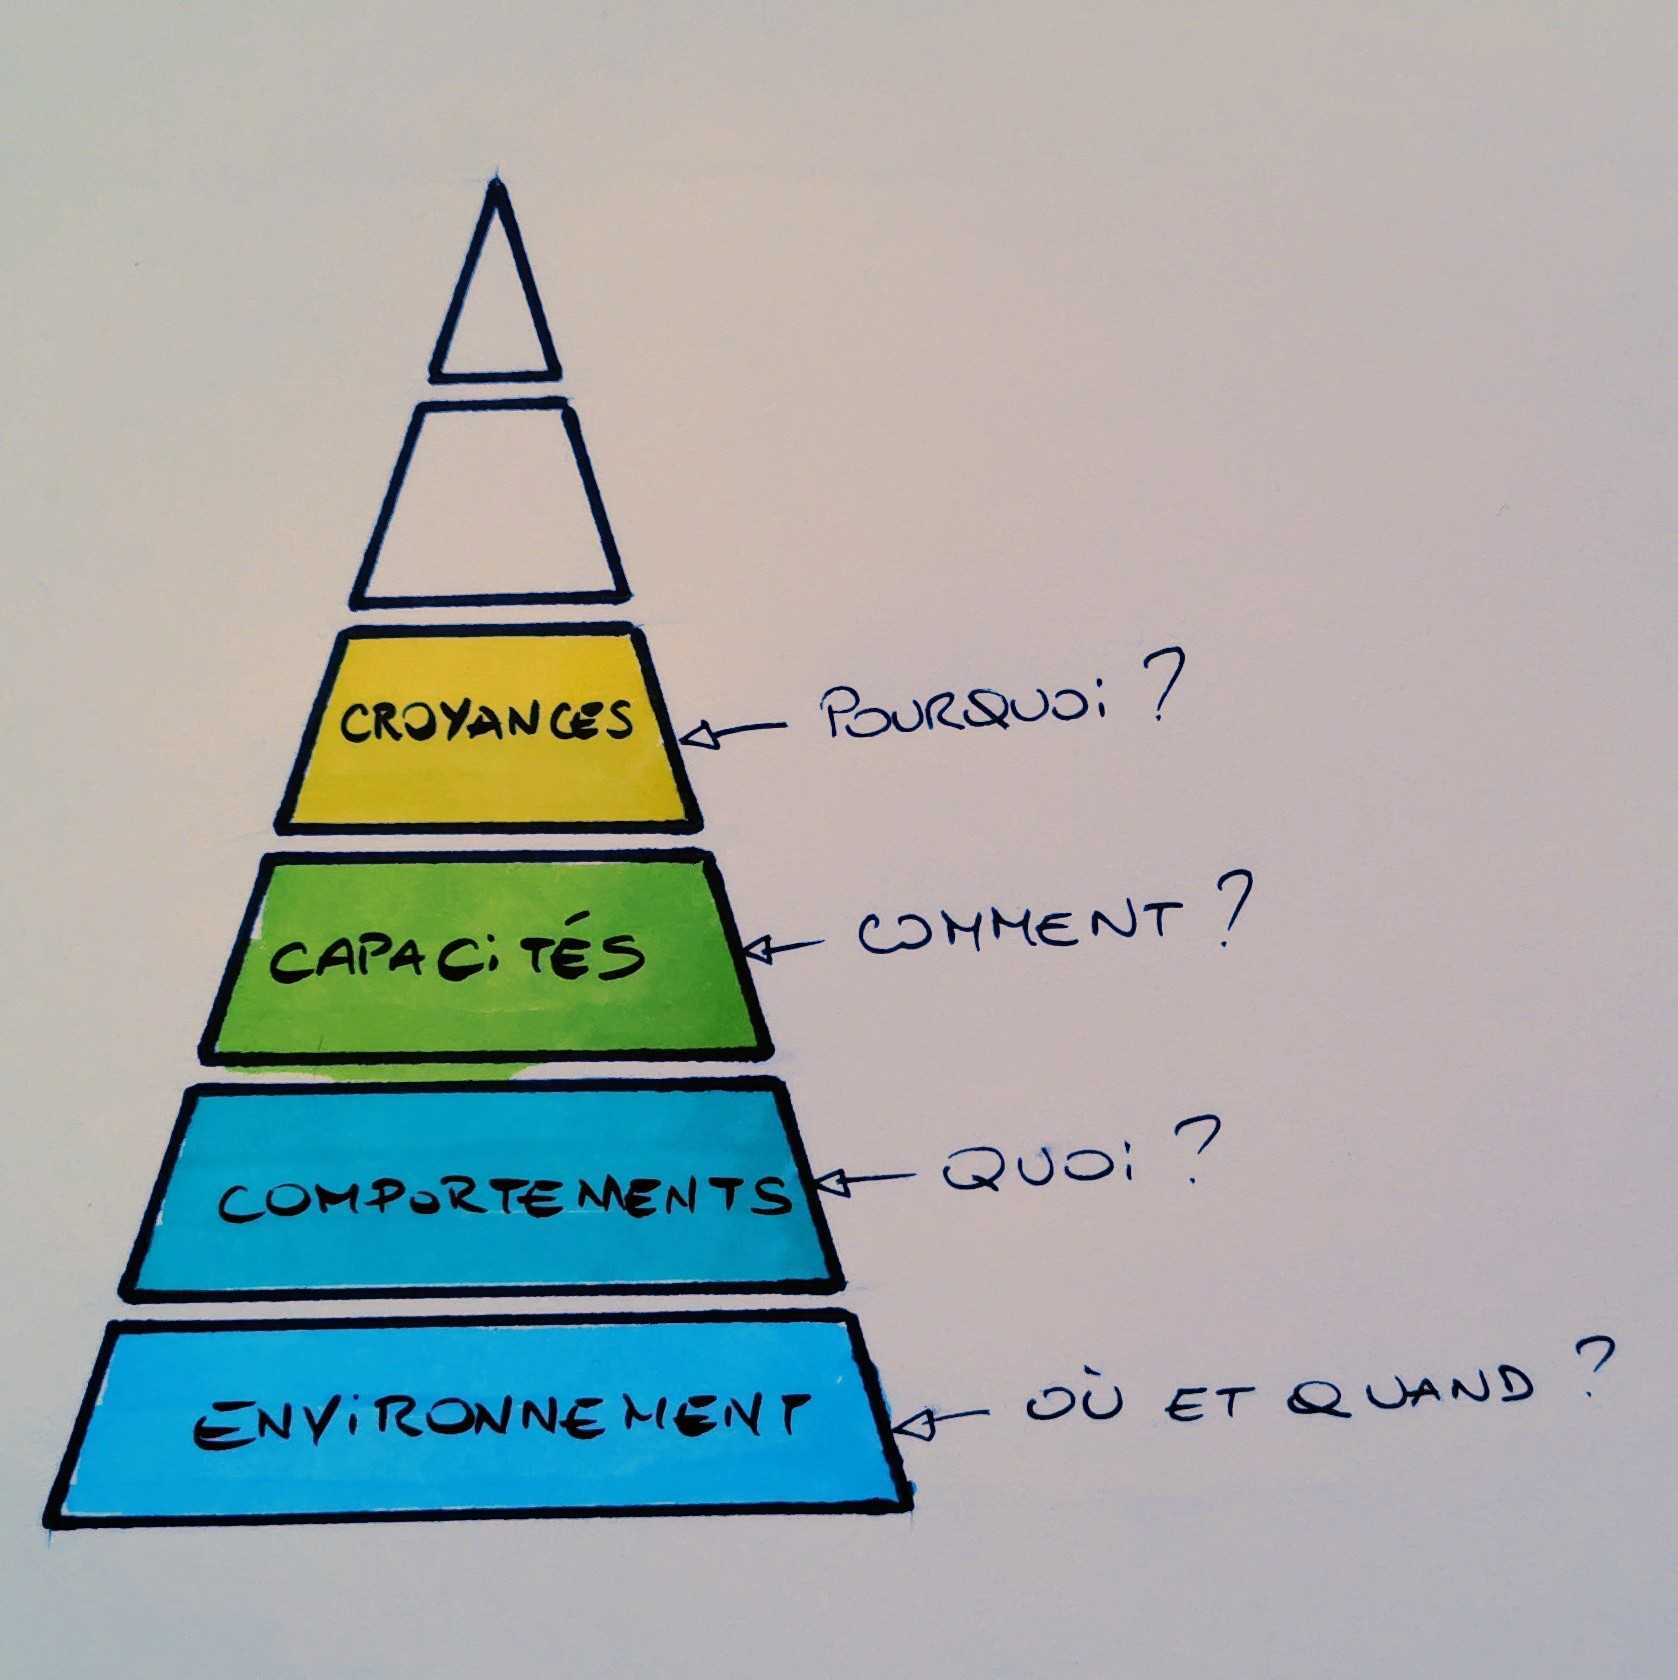 CROYANCES
POURQUOi ?
CAPACiTÉS
COMMENT ?
COMPORTEMENTS
QUOi ?
ENViRONNEMENT
OÙ ET QUAND ?